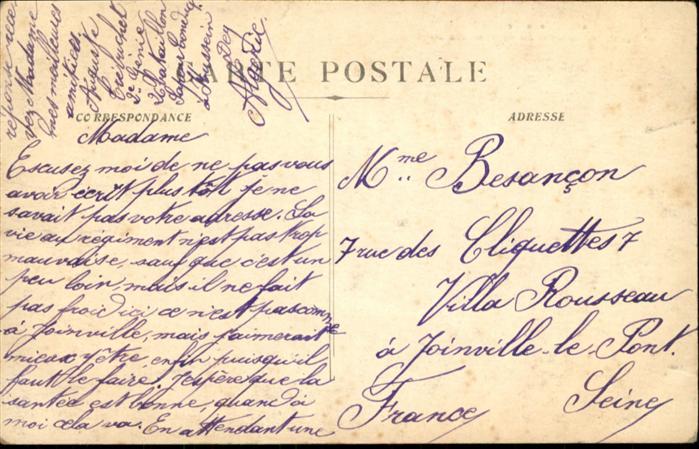 CARTE POSTALE
CORRESPONDANCE
ADRESSE
Madame
Escusez moi de ne pas vous
avoir écrit plus tôt je ne
savait pas votre adresse. La
vie au régiment n'est pas trop
mauvaise, sauf que c'est un
peu loin, mais il ne fait
pas froid ici ce n'est pas comme
à Joinville, mais j'aimerait
mieux y être, enfin puisqu'il
faut le faire. J'espère que la
santée est bonne, quand à
moi cela va. En attendant une
réponse
Madame
mes meilleurs
amitiées
Auguste
2e Génie
2e Bataillon
à Hussein
Dey
Algérie
Mme Besançon
7 rue des Cliquettes 7
Villa Rousseau
à Joinville-le-Pont.
Seine
France